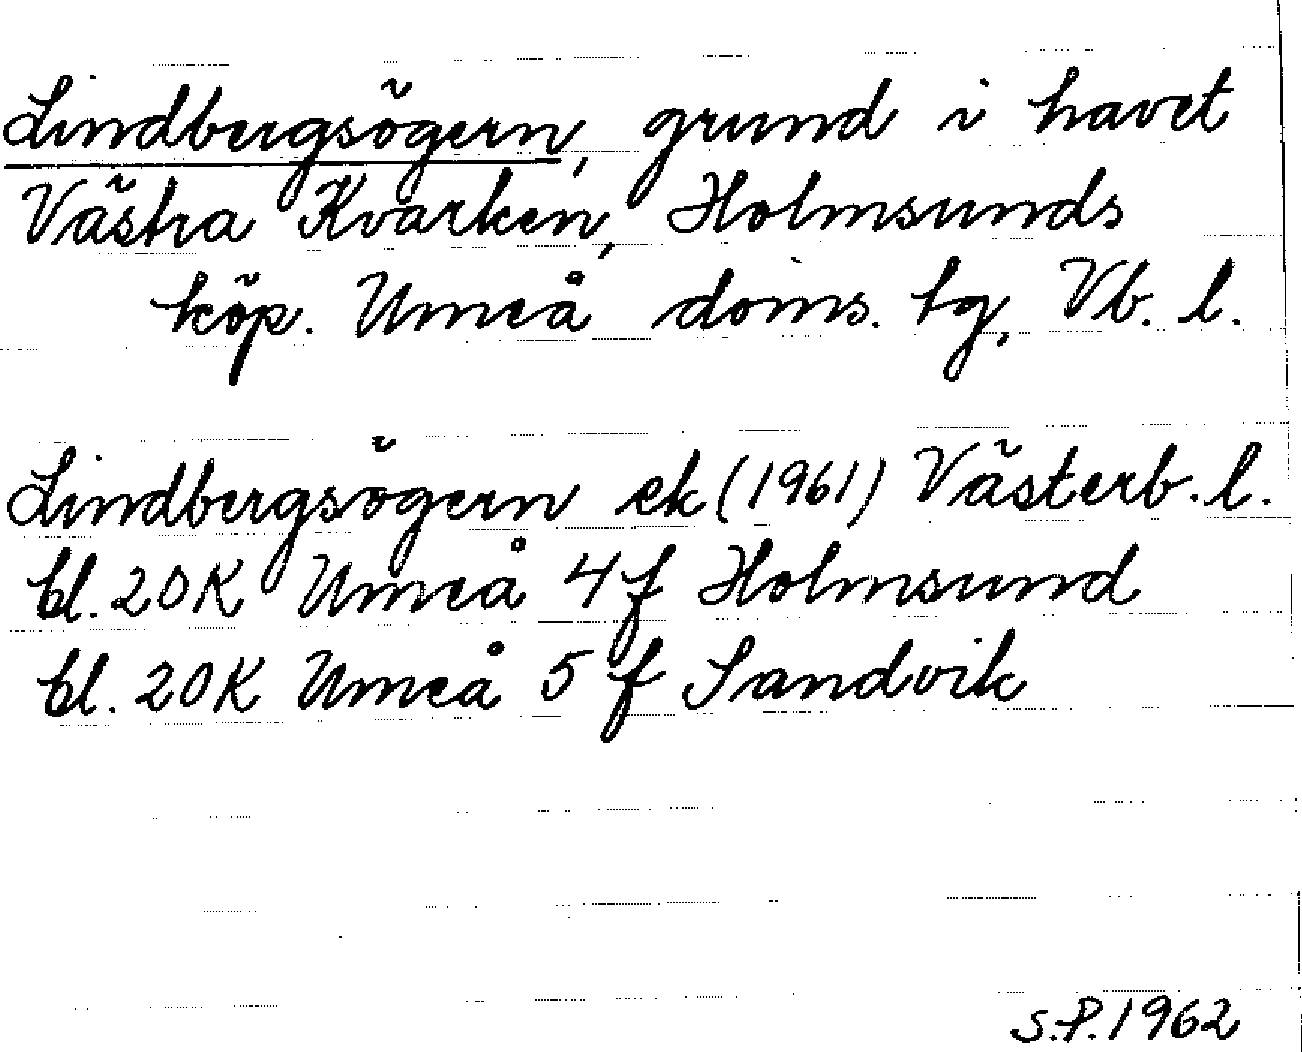 Lindbergsögern, grund i havet
Västra Kvarken, Holmsunds
köp. Umeå doms. tg, Vb. l.
Lindbergsögern ek (1961) Västerb. l.
bl. 20K Umeå 4 f Holmsund
bl. 20K Umeå 5 f Sandvik
S.P. 1962